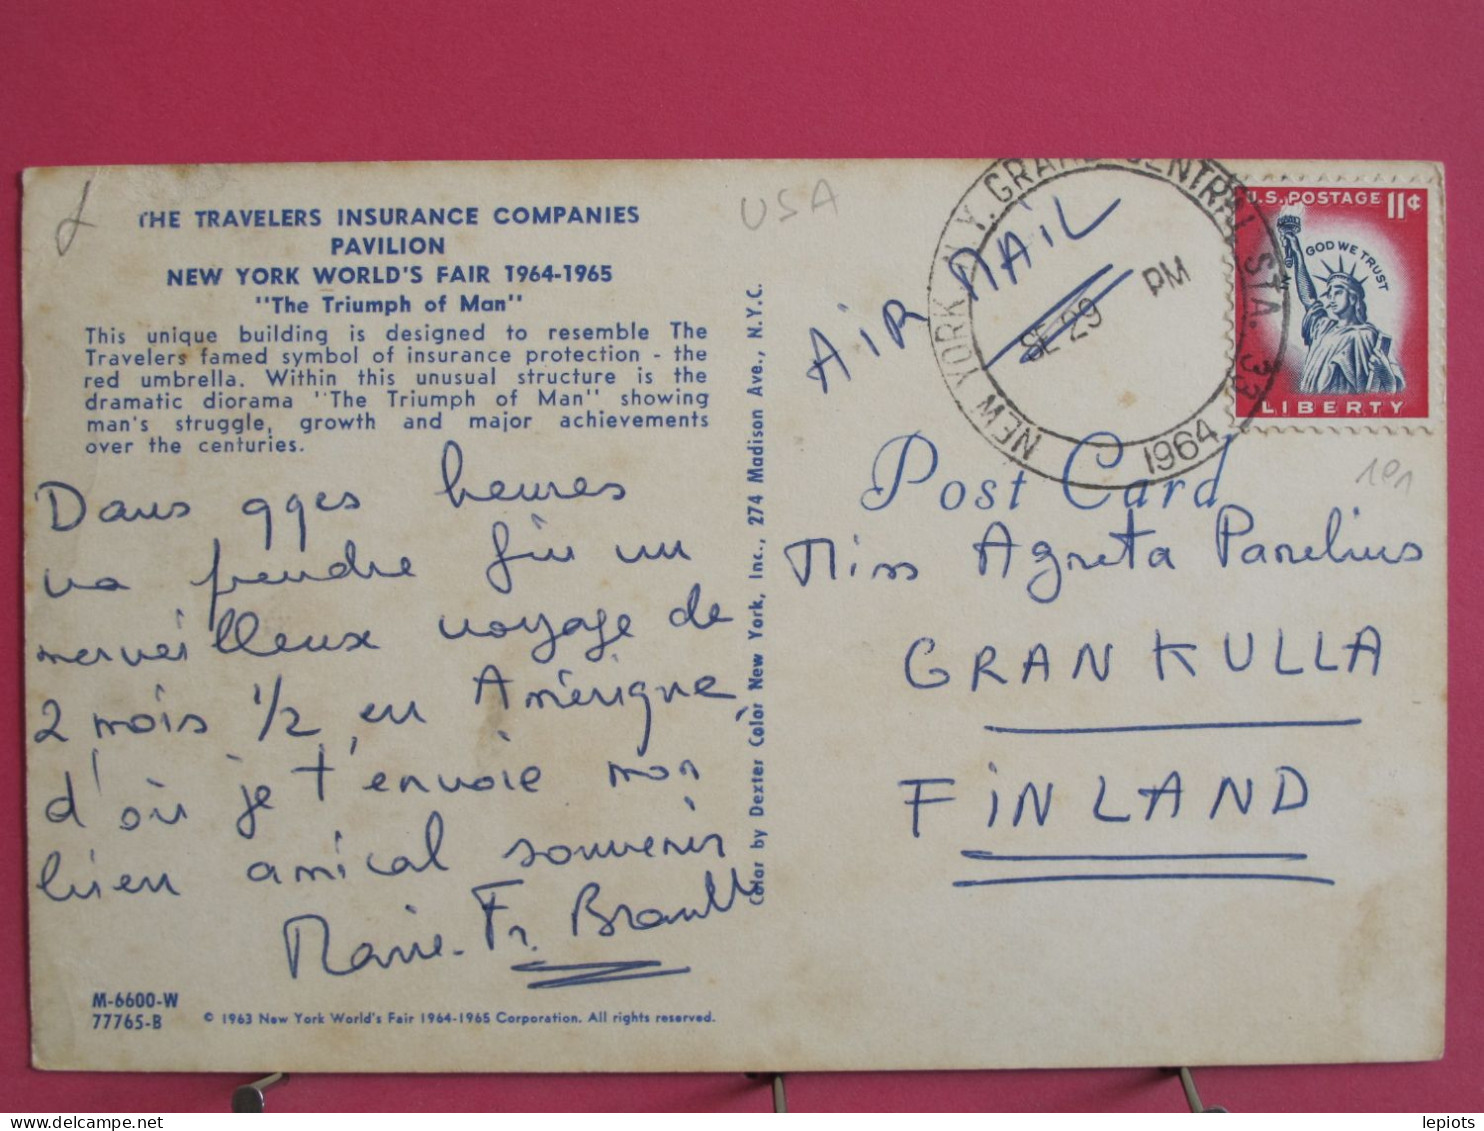 THE TRAVELERS INSURANCE COMPANIES
PAVILION
NEW YORK WORLD'S FAIR 1964-1965
"The Triumph of Man"
This unique building is designed to resemble The
Travelers famed symbol of insurance protection - the
red umbrella. Within this unusual structure is the
dramatic diorama "The Triumph of Man" showing
man's struggle, growth and major achievements
over the centuries.
Dans qques heures
va prendre fin un
merveilleux voyage de
2 mois 1/2 en Amérique,
d'où je t'envoie mon
bien amical souvenir
Marie-Fr. Brault
M-6600-W
77765-B
© 1963 New York World's Fair 1964-1965 Corporation. All rights reserved.
Color by Dexter Color New York, Inc., 274 Madison Ave., N.Y.C.
USA
AIR MAIL
NEW YORK N.Y. GRAND CENTRAL STA. 33
SE 29 PM
1964
U.S. POSTAGE 11¢
IN GOD WE TRUST
LIBERTY
1P1
Post Card
Miss Agneta Panelius
GRANKULLA
FINLAND
lepiots